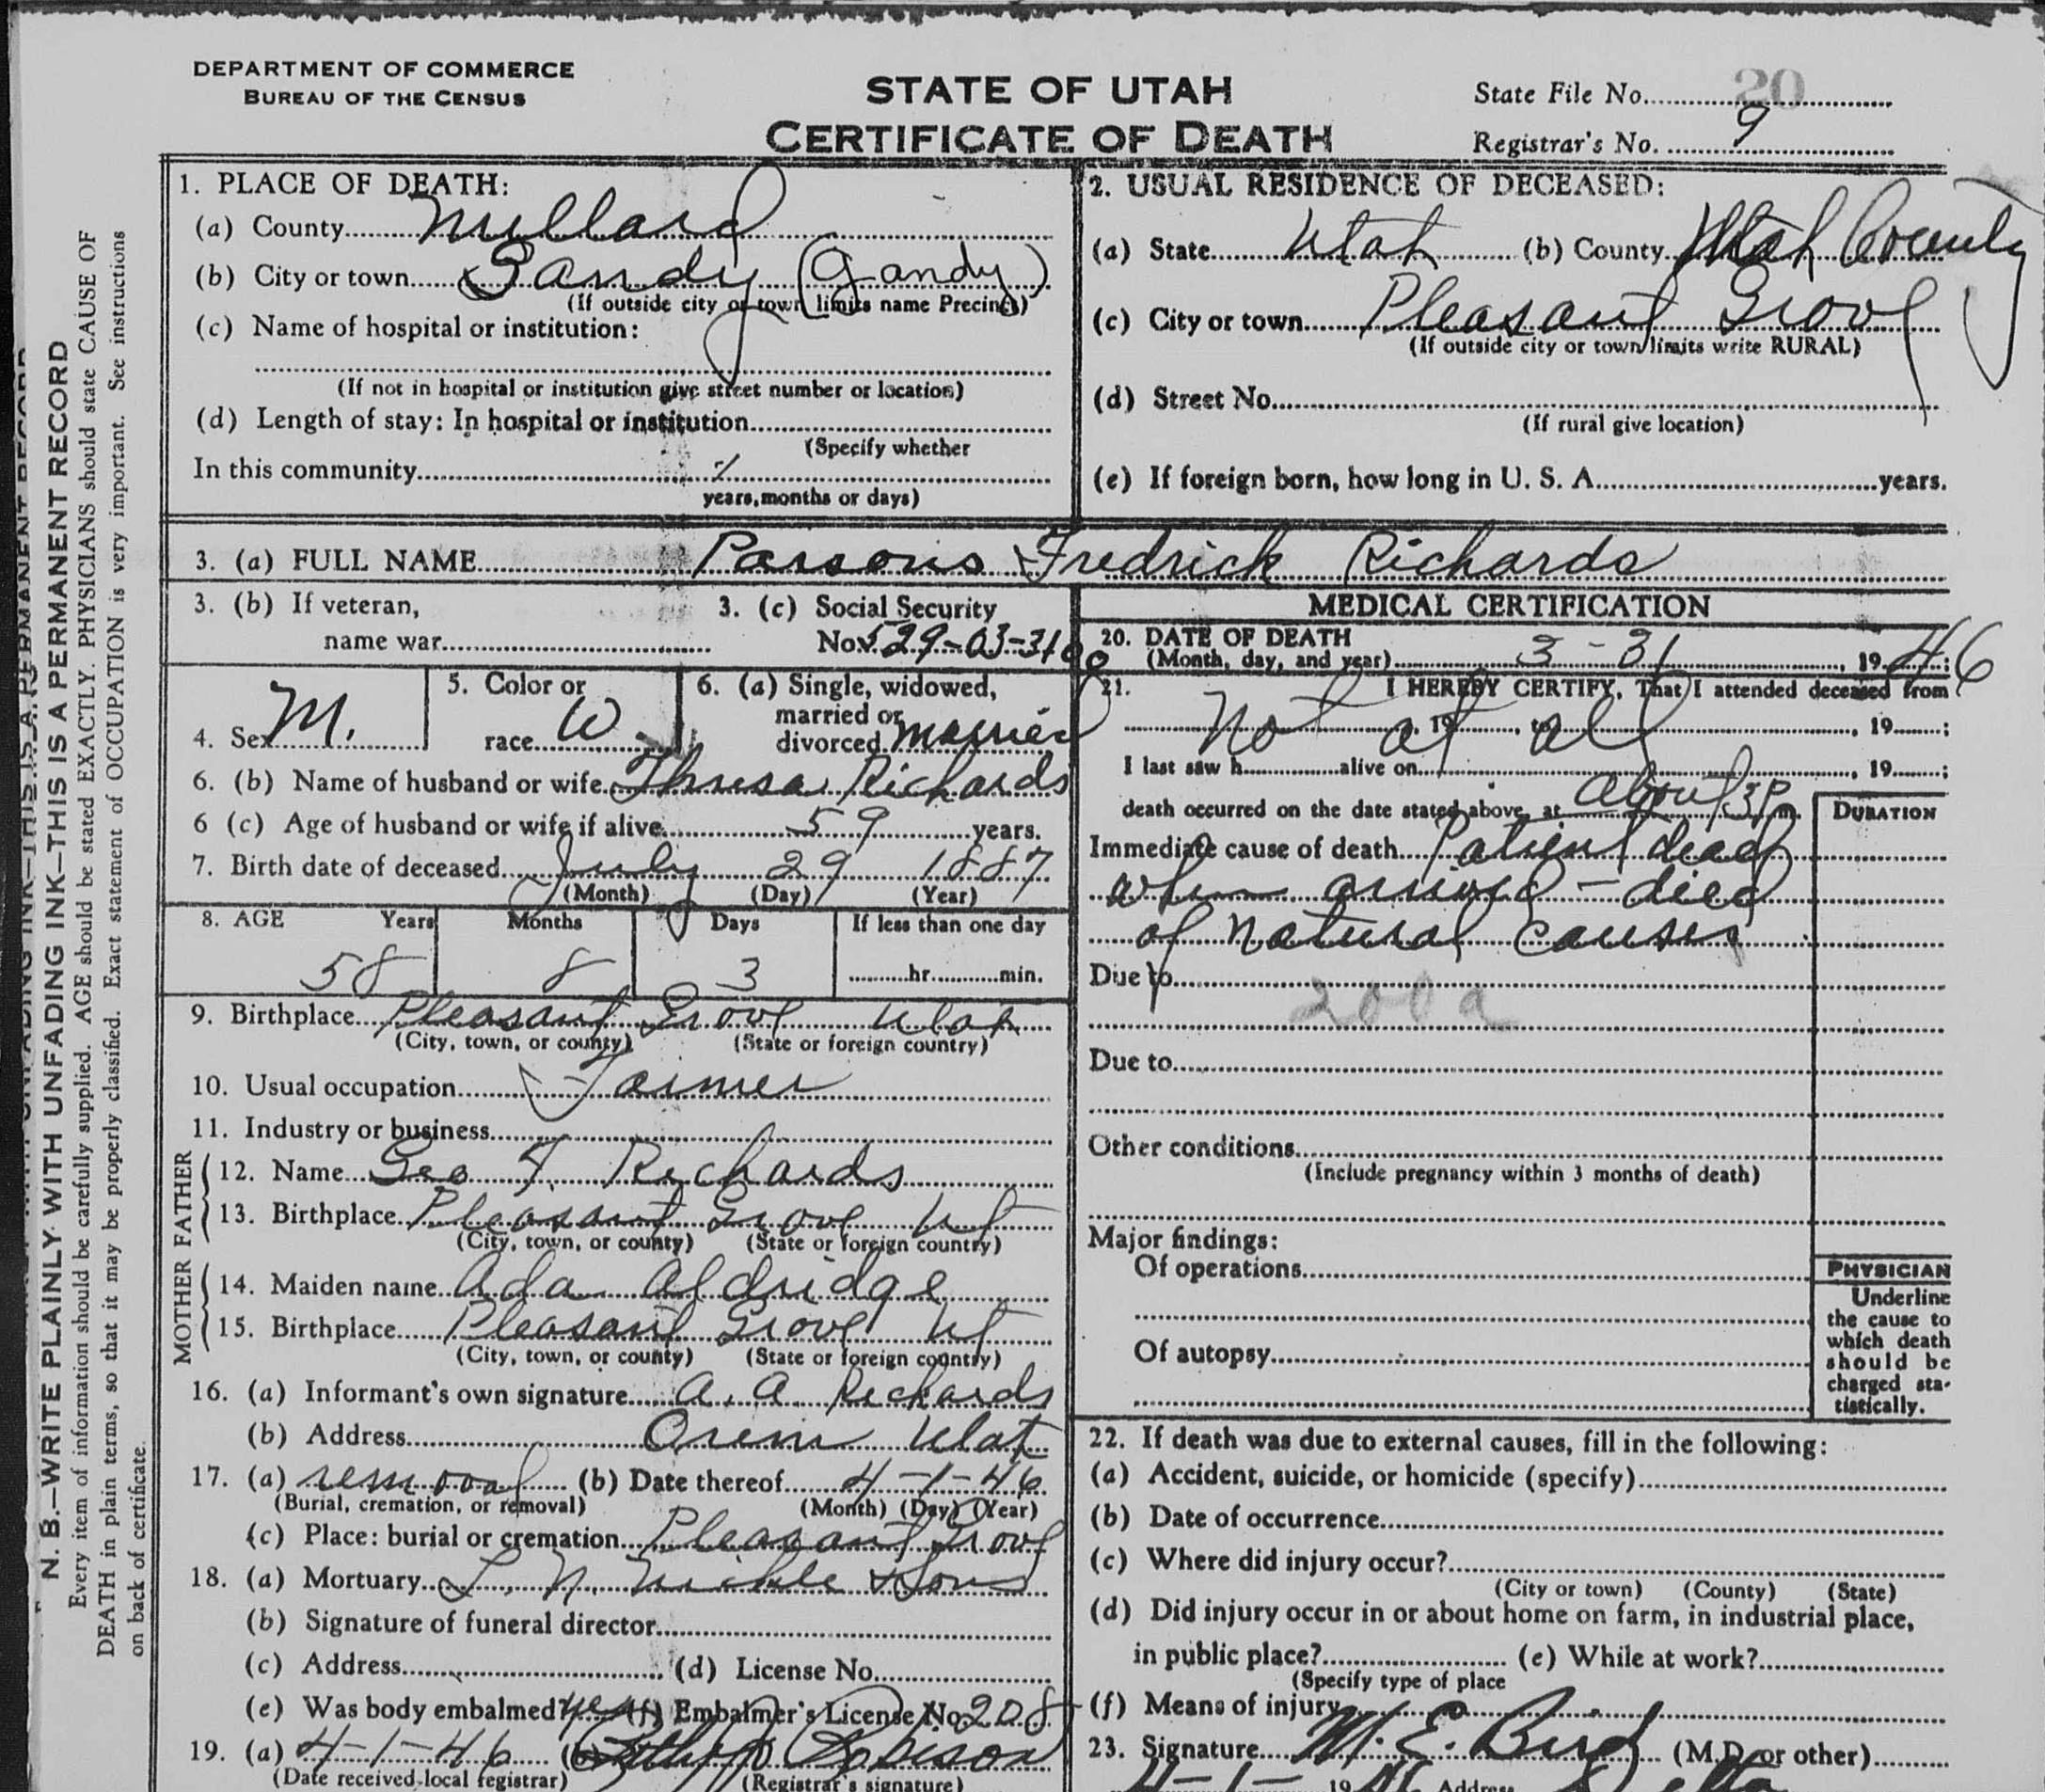 DEPARTMENT OF COMMERCE
BUREAU OF THE CENSUS
STATE OF UTAH
CERTIFICATE OF DEATH
State File No. 20
Registrar's No. 9
1. PLACE OF DEATH:
(a) County Millard
(b) City or town Gandy (Gandy)
(If outside city or town limits name Precinct)
(c) Name of hospital or institution:
(If not in hospital or institution give street number or location)
(d) Length of stay: In hospital or institution
(Specify whether
In this community
years, months or days)
2. USUAL RESIDENCE OF DECEASED:
(a) State Utah (b) County Utah County
(c) City or town Pleasant Grove
(If outside city or town limits write RURAL)
(d) Street No.
(If rural give location)
(e) If foreign born, how long in U. S. A. years.
3. (a) FULL NAME Parsons Fredrick Richards
3. (b) If veteran,
name war
3. (c) Social Security
No. 529-03-3100
4. Sex M.
5. Color or
race W
6. (a) Single, widowed,
married or
divorced married
6. (b) Name of husband or wife Thresa Richards
6 (c) Age of husband or wife if alive 59 years.
7. Birth date of deceased July 29 1887
(Month) (Day) (Year)
8. AGE Years Months Days If less than one day
58 8 3 hr. min.
9. Birthplace Pleasant Grove Utah
(City, town, or county) (State or foreign country)
10. Usual occupation Farmer
11. Industry or business
FATHER
12. Name Geo F. Richards
13. Birthplace Pleasant Grove Ut
(City, town, or county) (State or foreign country)
MOTHER
14. Maiden name Ada Aldridge
15. Birthplace Pleasant Grove Ut
(City, town, or county) (State or foreign country)
16. (a) Informant's own signature A. A. Richards
(b) Address Orem Utah
17. (a) removal (b) Date thereof 4-1-46
(Burial, cremation, or removal) (Month) (Day) (Year)
(c) Place: burial or cremation Pleasant Grove
18. (a) Mortuary L. N. & Sons
(b) Signature of funeral director
(c) Address (d) License No.
(e) Was body embalmed yes (f) Embalmer's License No. 208
19. (a) 4-1-46 (b)
(Date received local registrar) (Registrar's signature)
MEDICAL CERTIFICATION
20. DATE OF DEATH
(Month, day, and year) 3-31, 1946;
21. I HEREBY CERTIFY, That I attended deceased from
Not at all, 19 , to , 19 ;
I last saw h alive on , 19 ;
death occurred on the date stated above, at About 3 P m.
DURATION
Immediate cause of death Patient dead
when arrived - died
of natural causes
Due to
200a
Due to
Other conditions
(Include pregnancy within 3 months of death)
Major findings:
Of operations
Of autopsy
PHYSICIAN
Underline
the cause to
which death
should be
charged sta-
tistically.
22. If death was due to external causes, fill in the following:
(a) Accident, suicide, or homicide (specify)
(b) Date of occurrence
(c) Where did injury occur?
(City or town) (County) (State)
(d) Did injury occur in or about home on farm, in industrial place,
in public place? (e) While at work?
(Specify type of place
(f) Means of injury
23. Signature M. E. Bird (M.D. or other)
4-1- 1946 Address Delta
N. B.—WRITE PLAINLY WITH UNFADING INK—THIS IS A PERMANENT RECORD
Every item of information should be carefully supplied. AGE should be stated EXACTLY. PHYSICIANS should state CAUSE OF
DEATH in plain terms, so that it may be properly classified. Exact statement of OCCUPATION is very important. See instructions
on back of certificate.